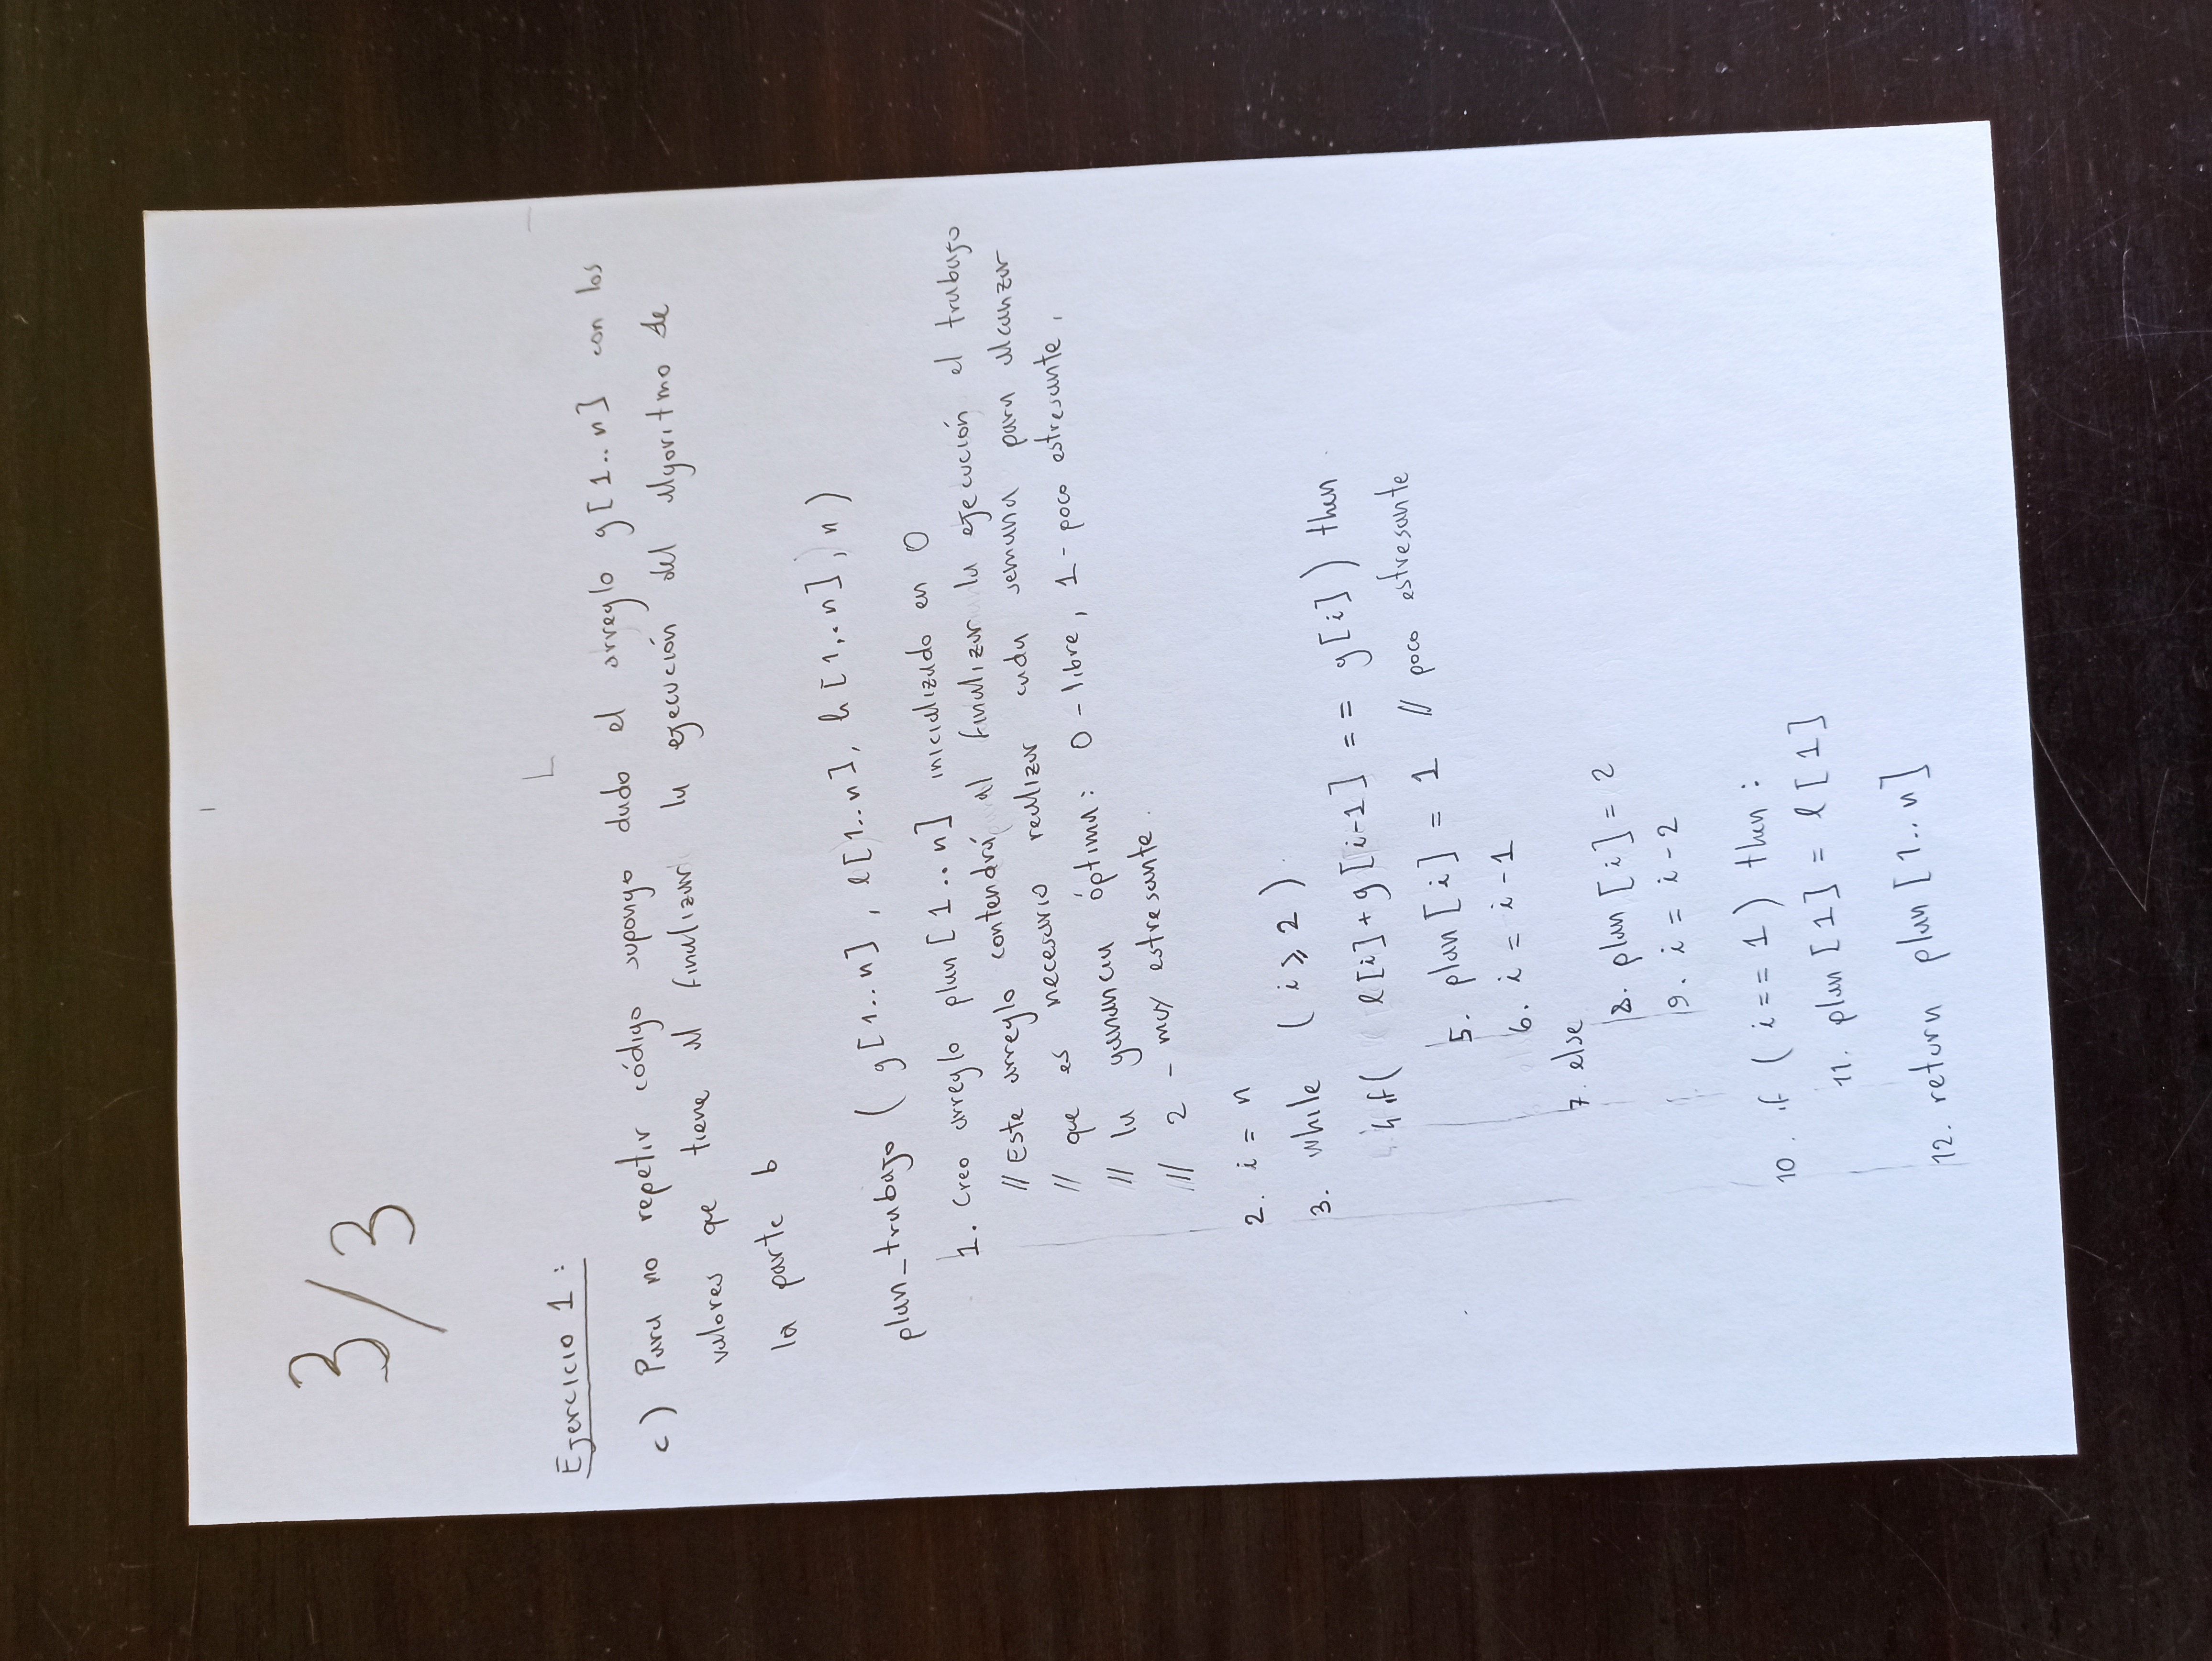 3/3
Ejercicio 1:
c) Para no repetir código supongo dado el arreglo g[1..n] con los
valores que tiene al finalizar la ejecución del algoritmo de
la parte b
plan_trabajo ( g[1..n], l[1..n], h[1..n], n)
1. Creo arreglo plan[1..n] inicializado en 0
// Este arreglo contendrá al finalizar la ejecución el trabajo
// que es necesario realizar cada semana para alcanzar
// la ganancia óptima: 0 - libre, 1 - poco estresante,
// 2 - muy estresante.
2. i = n
3. while (i ≥ 2)
4 if( l[i] + g[i-1] == g[i]) then
5. plan[i] = 1 // poco estresante
6. i = i - 1
7. else
8. plan[i] = 2
9. i = i - 2
10. if (i == 1) then:
11. plan[1] = l[1]
12. return plan[1..n]